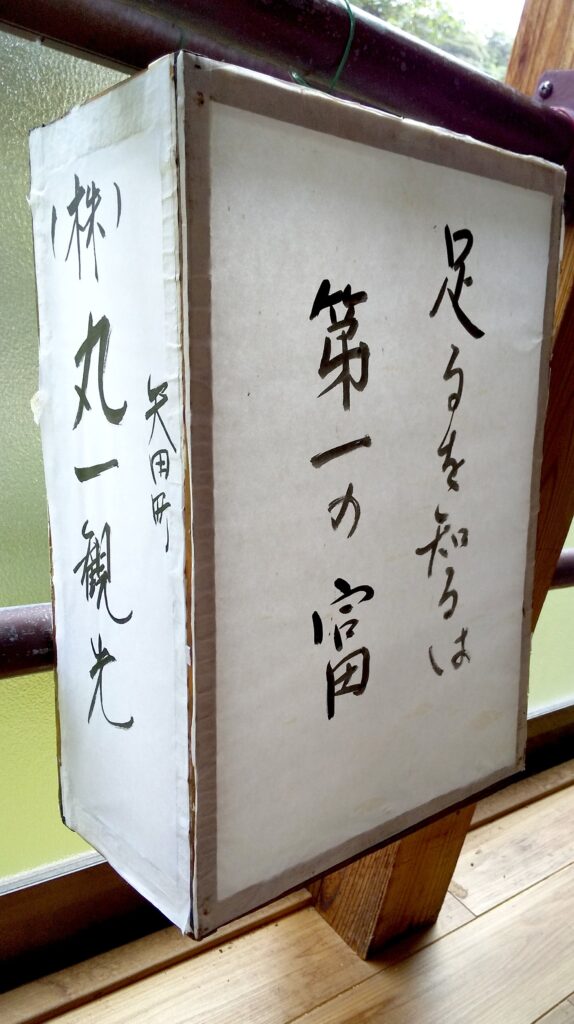 足るを知るは
第一の富
矢田町
(株)丸一観光